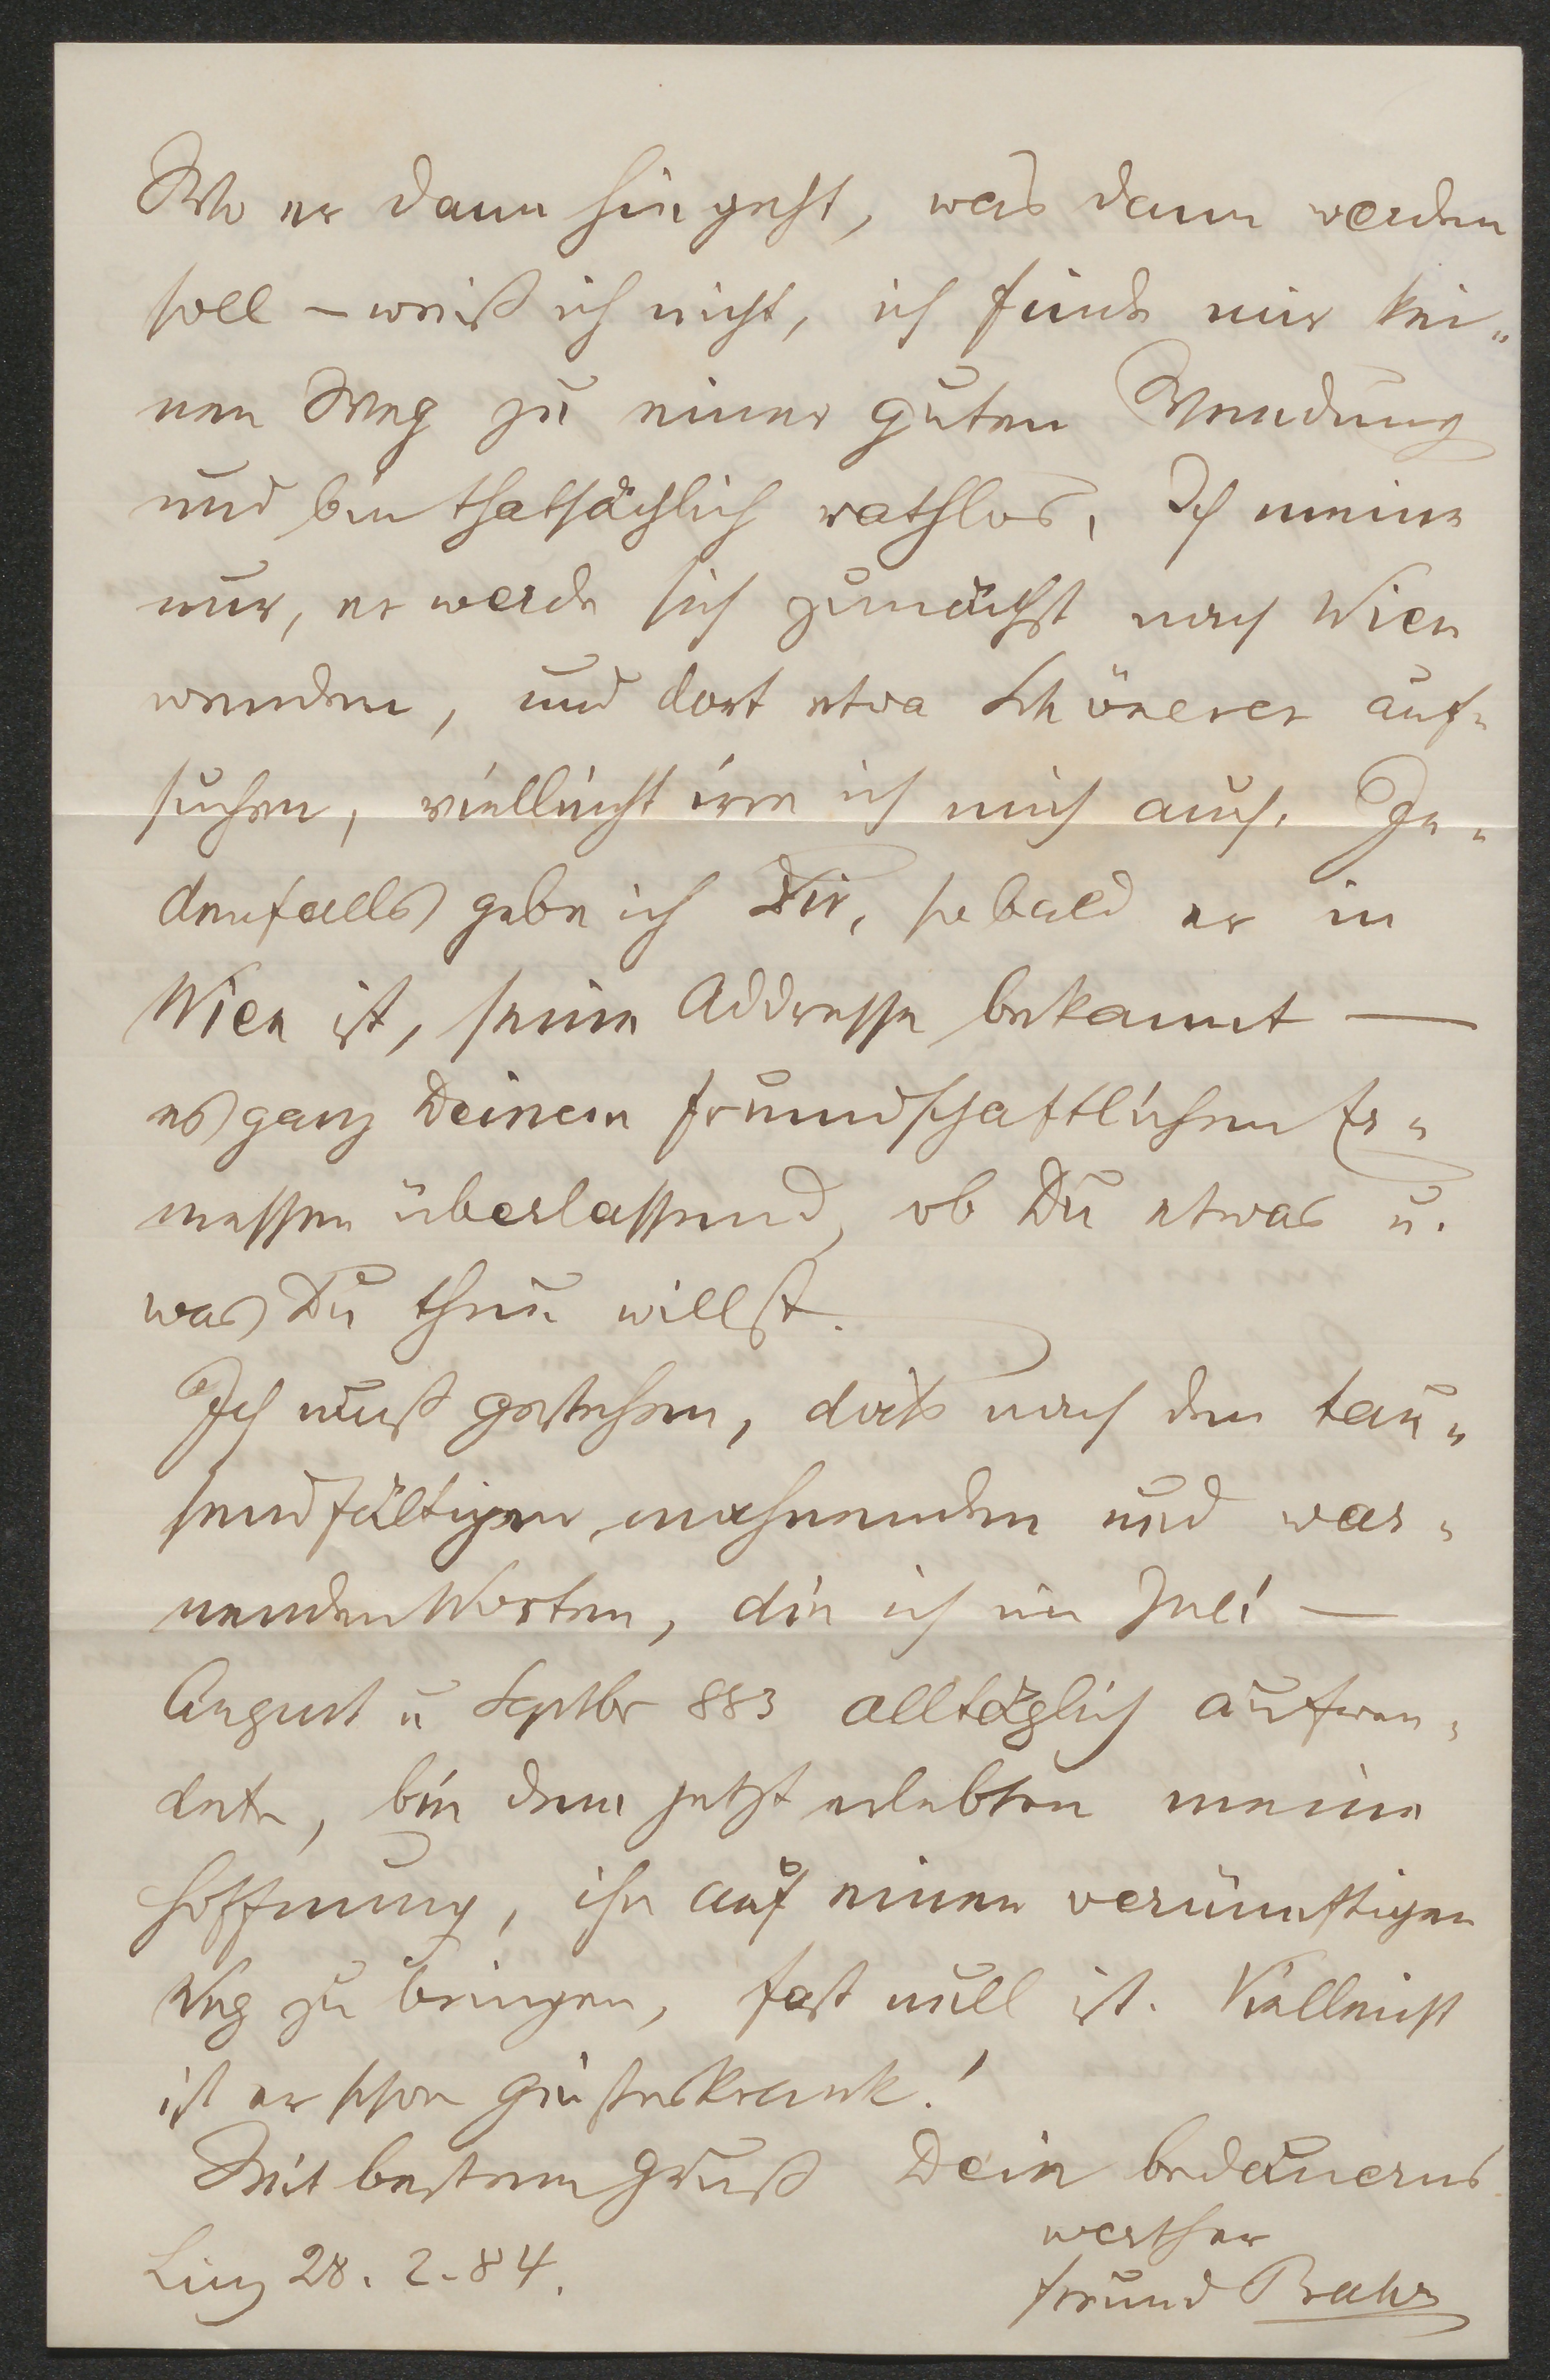 Wo er dann hingeht, was dann werden
soll – weiß ich nicht, ich finde mir kei„
nen Weg zu einer guten Wendung
und bin thatsächlich rathlos. Ich meine
nur, er werde sich zunächst nach Wien
wenden, und dort etwa Schönerer auf„
suchen, vielleicht irre ich mich auch. Je„
denfalls gebe ich Dir, sobald er in
Wien ist, seine Addresse bekannt —
es ganz Deinem freundschaftlichen Er„
messen überlassend, ob Du etwas u.
was Du thun willst.
Ich muß gestehen, daß nach den tau„
sendfältigen mahnenden und war„
nenden Worten, die ich im Juli —
August u Septbr 883 alltäglich aufwen„
dete, bin dem jetzt erlebten meine
Hoffnung, ihn auf einen vernünftigen
Weg zu bringen, fast null ist. Vielleicht
ist er schon geisteskrank!
Mit bestem Gruß Dein bedauerns
werther
Linz 28. 2. 84.
Freund Bahr